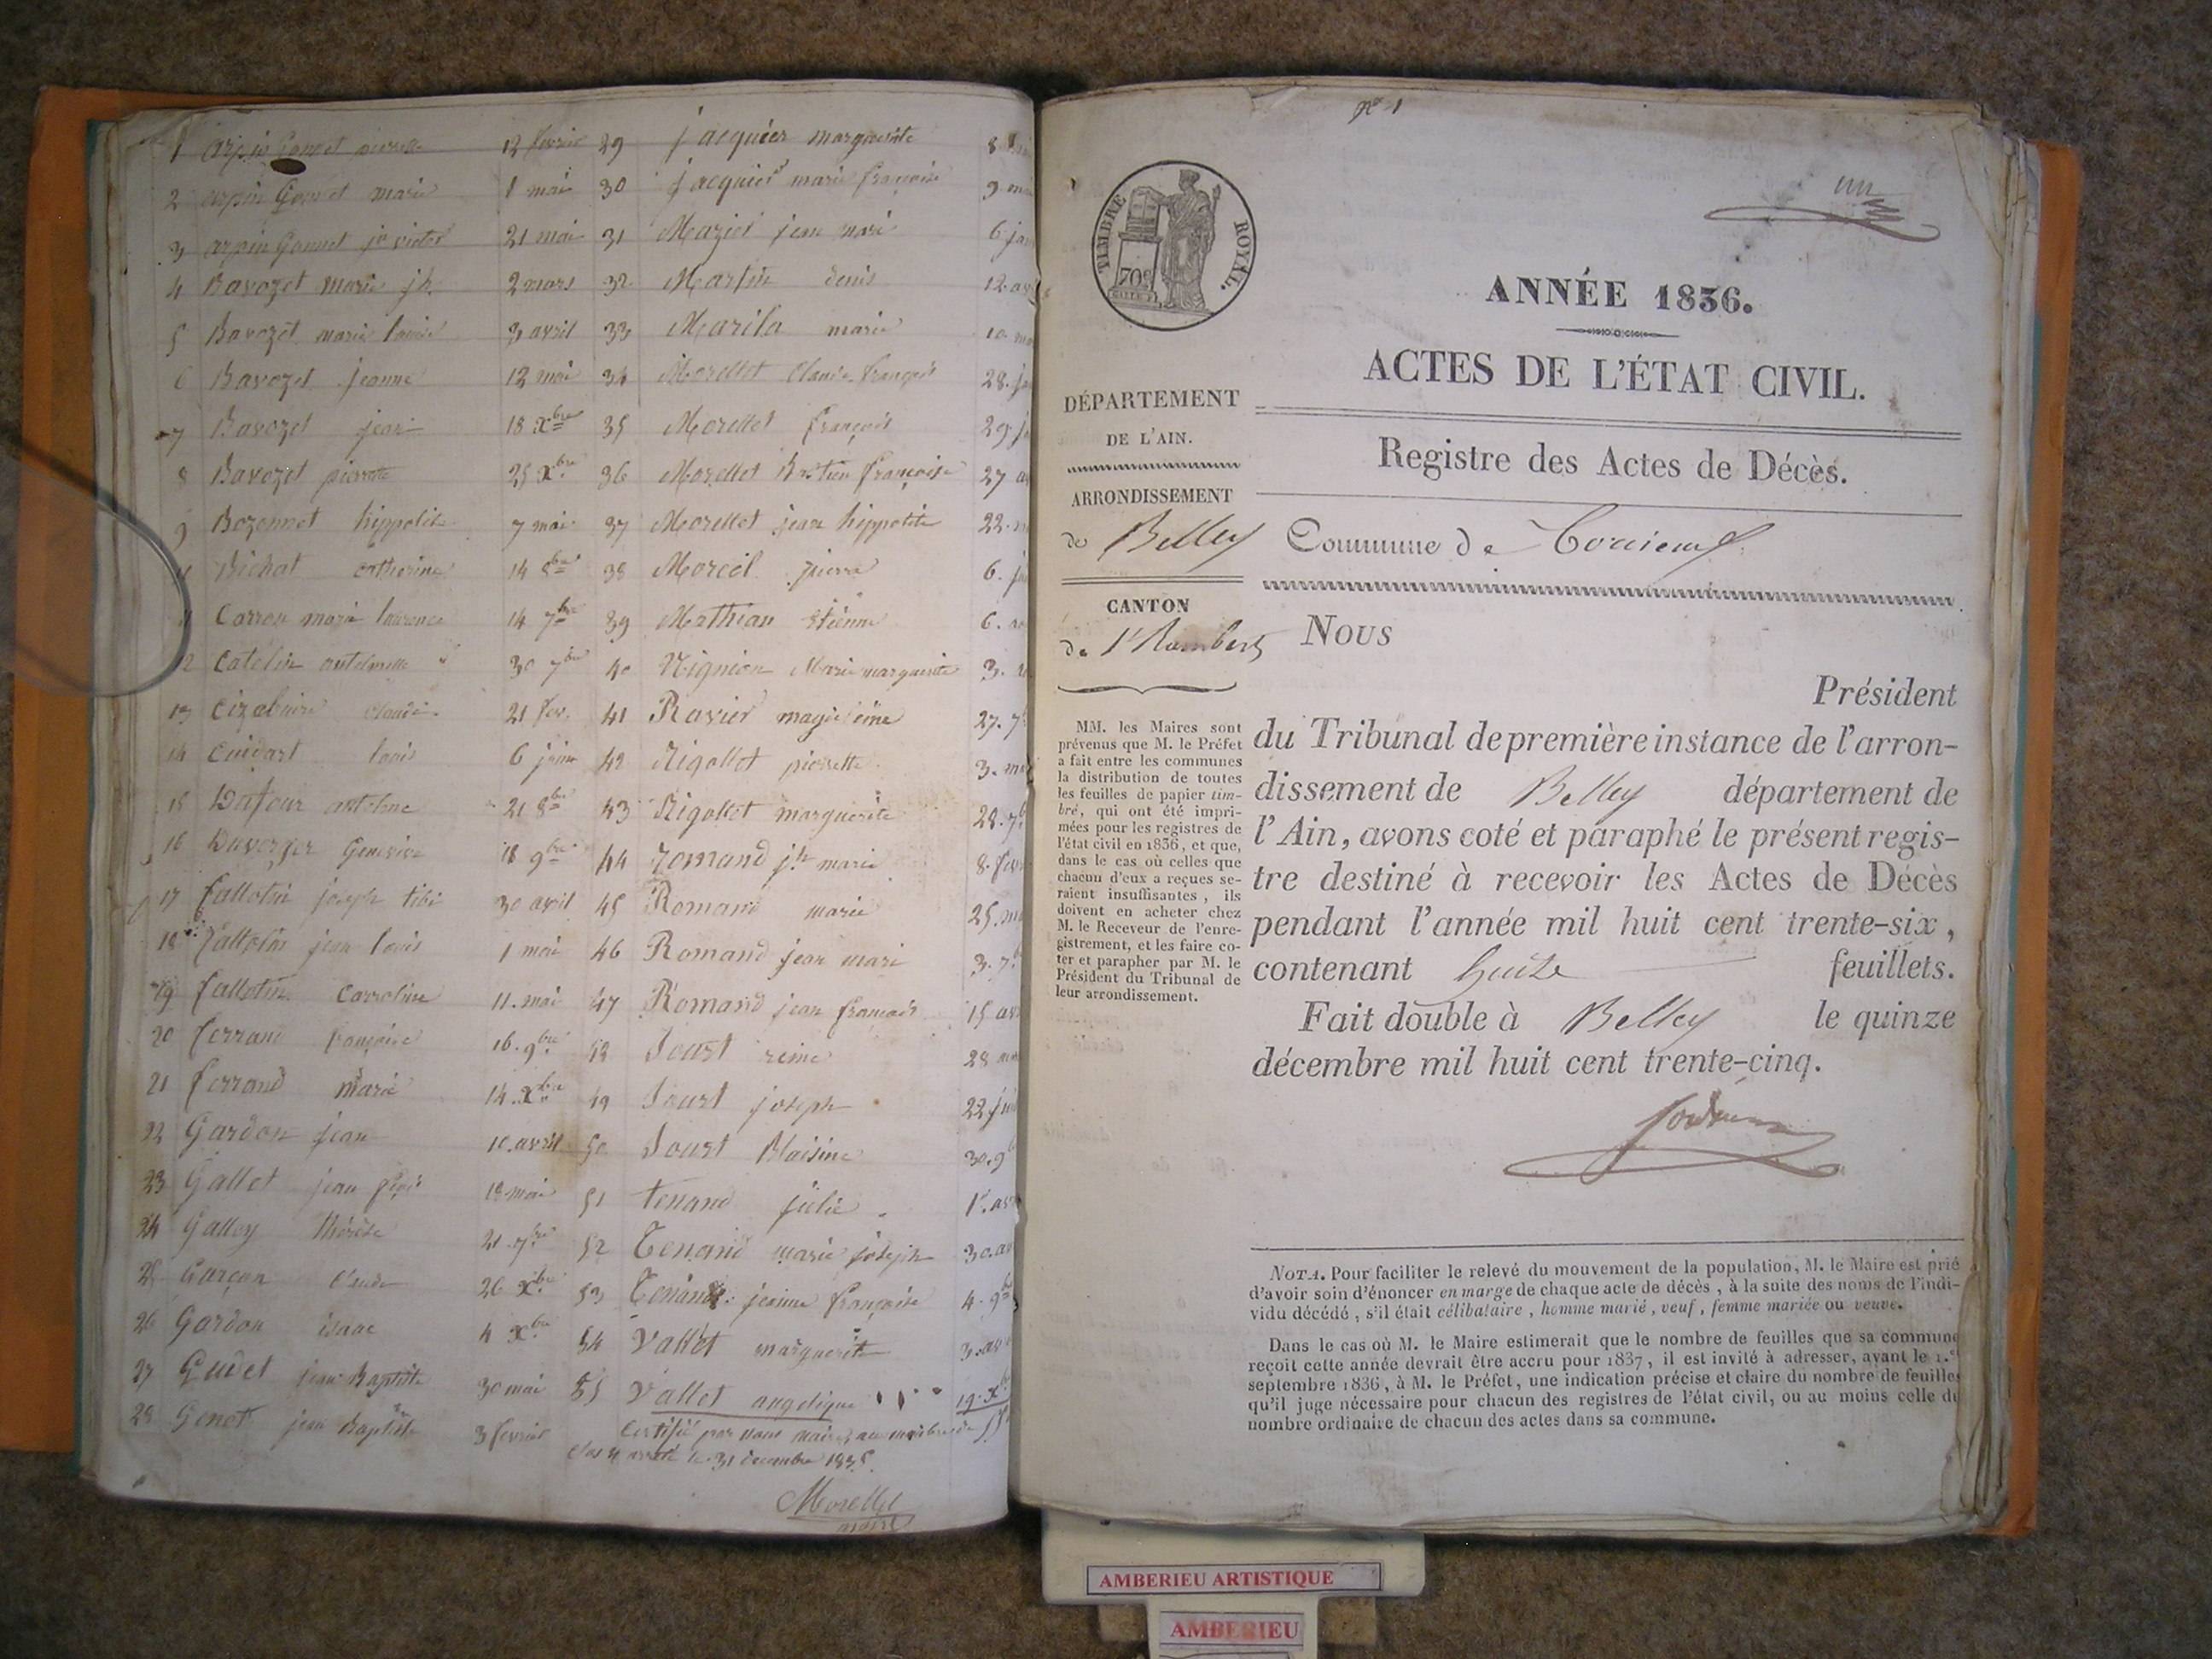 1 arpin Gonnet pierrette 12 fevrier
2 arpin Gonnet marie 1 mai
3 arpin Gonnet jn victor 21 mai
4 Bavozet marie jh. 2 mars
5 Bavozet marie louise 3 avril
6 Bavozet jeanne 12 mai
7 Bavozet jean 18 Xbre
8 Bavozet pierrette 25 Xbre
9 Bozonnet hippolite 7 mai
Bichat catherine 14 8bre
11 Carron marie laurence 14 7bre
12 Catelin antelmette 30 7bre
13 Cizabuire claude 21 fev.
14 Cuidart louis 6 juin
15 Dufour antelme 21 8bre
16 Duverger Genevieve 18 9bre
17 fallotin joseph 30 avril
18 fallotin jean louis 1 mai
19 fallotin Carroline 11. mai
20 ferrand françoise 16. 9bre
21 ferrand marie 14. Xbre
22 Gardon jean 10. avril
23 Gallet jean 19 mai
24 Galley thérèse 21. 7bre
25 Garçon Claude 26 Xbre
26 Gardon isaac 4 Xbre
27 Gudet jean Baptiste 30 mai
28 Genet jean Baptiste 3 fevrier
29 jacquier marguerite 8
30 jacquier marie françoise 9
31 Mazier jean marie 6
32 Martin denis 12
33 Marila marie 10
34 Morellet Claude françois 28.
35 Morellet françois 29
36 Morellet Bastien françoise 27
37 Morellet jean hippolite 22.
38 Morcel pierre 6.
39 Mathian etienne 6.
40 Nignion Marie marguerite 3.
41 Ravier magdeleine 27.
42 Rigollet pierrette 3.
43 Rigollet marguerite 28.
44 romand jh marie 8.
45 Romand marie 25.
46 Romand jean marie 3.
47 Romand jean françois 15
48 Joust reine 28
49 Joust joseph 22
50 Joust Blaisine 30.
51 tenand julie 1er.
52 Tenand marie joseph 30.
53 Tenand jeanne françoise 4.
54 Vallet marguerite 3.
55 Vallet angelique 19. X
Certifié par nous maire au nombre de 55
clos et arreté le 31 decembre 1835.
Morellet
maire
No 1
un
TIMBRE ROYAL.
70c
ANNÉE 1836.
ACTES DE L'ÉTAT CIVIL.
Registre des Actes de Décès.
DÉPARTEMENT
DE L'AIN.
ARRONDISSEMENT
de Belley
CANTON
de St Rambert
Commune de Torcieu
MM. les Maires sont
prévenus que M. le Préfet
a fait entre les communes
la distribution de toutes
les feuilles de papier tim-
bré, qui ont été impri-
mées pour les registres de
l'état civil en 1836, et que,
dans le cas où celles que
chacun d'eux a reçues se-
raient insuffisantes, ils
doivent en acheter chez
M. le Receveur de l'enre-
gistrement, et les faire co-
ter et parapher par M. le
Président du Tribunal de
leur arrondissement.
NOUS
Président
du Tribunal de première instance de l'arron-
dissement de Belley département de
l'Ain, avons coté et paraphé le présent regis-
tre destiné à recevoir les Actes de Décès
pendant l'année mil huit cent trente-six,
contenant huit feuillets.
Fait double à Belley le quinze
décembre mil huit cent trente-cinq.
NOTA. Pour faciliter le relevé du mouvement de la population, M. le Maire est prié
d'avoir soin d'énoncer en marge de chaque acte de décès, à la suite des noms de l'indi-
vidu décédé, s'il était célibataire, homme marié, veuf, femme mariée ou veuve.
Dans le cas où M. le Maire estimerait que le nombre de feuilles que sa commune
reçoit cette année devrait être accru pour 1837, il est invité à adresser, avant le 1.er
septembre 1836, à M. le Préfet, une indication précise et claire du nombre de feuilles
qu'il juge nécessaire pour chacun des registres de l'état civil, ou au moins celle du
nombre ordinaire de chacun des actes dans sa commune.
AMBERIEU ARTISTIQUE
AMBERIEU